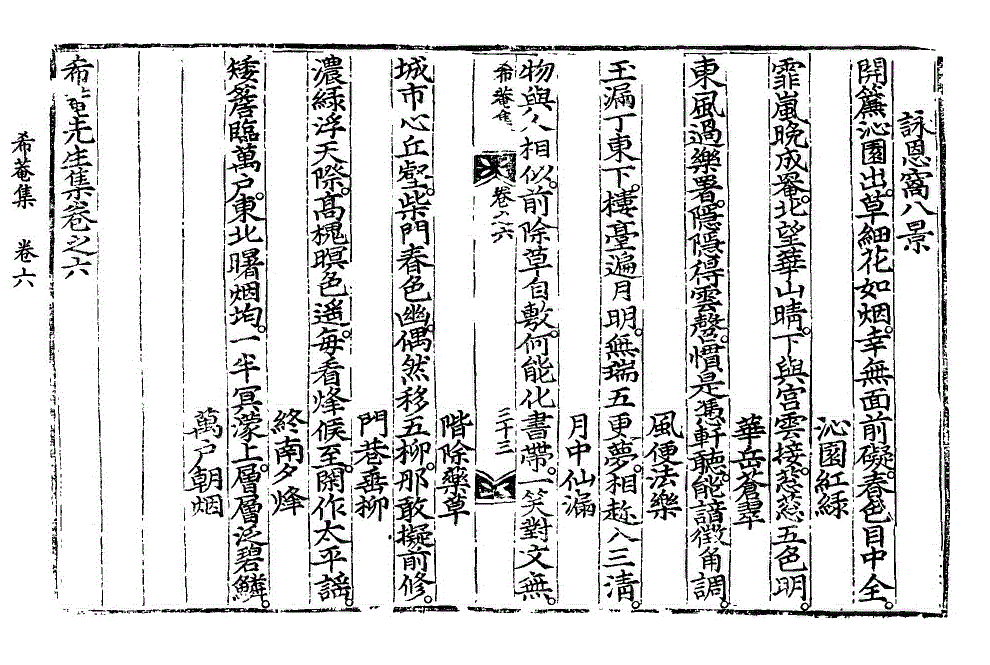 詠恩窩八景
開簾沁園出。草細花如烟。幸無面前礙。春色目中全。
沁園紅綠
霏嵐晚成滃。北望華山晴。下與宮雲接。葱葱五色明。
華岳蒼翠
東風過樂署。隱隱得雲磬。慣是憑軒聽。能諳徵角調。
風便法樂
玉漏丁東下。樓臺遍月明。無端五更夢。相趂八三淸。
月中仙漏
物與人相似。前除草自敷。何能化書帶。一笑對文無。
階除藥草
希菴集 卷之六 三十三
城市心丘壑。柴門春色幽。偶然移五柳。那敢擬前修。
門巷垂柳
濃綠浮天際。高槐暝色遥。每看烽候至。閑作太平謠。
終南夕烽
矮簷臨萬戶。東北曙烟均。一半冥濛上。層層泛碧鱗。
萬戶朝烟
希菴先生集卷之六
希菴集 卷六